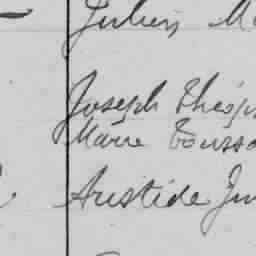 Julien M
Joseph Théop
Marie Touss
Aristide Ju